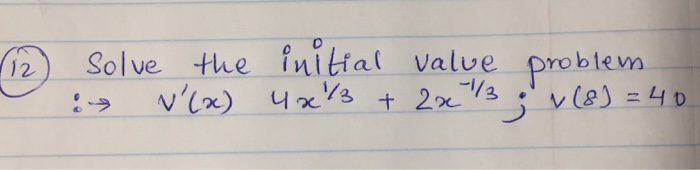 (12) Solve the initial value problem
:→ v'(x) 4x^1/3 + 2x^-1/3 ; v(8) = 40